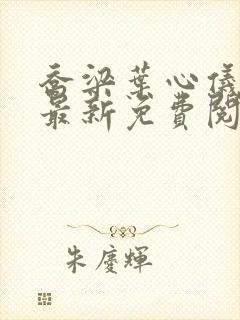 乔梁葉心儀
最新免費閱
朱慶輝